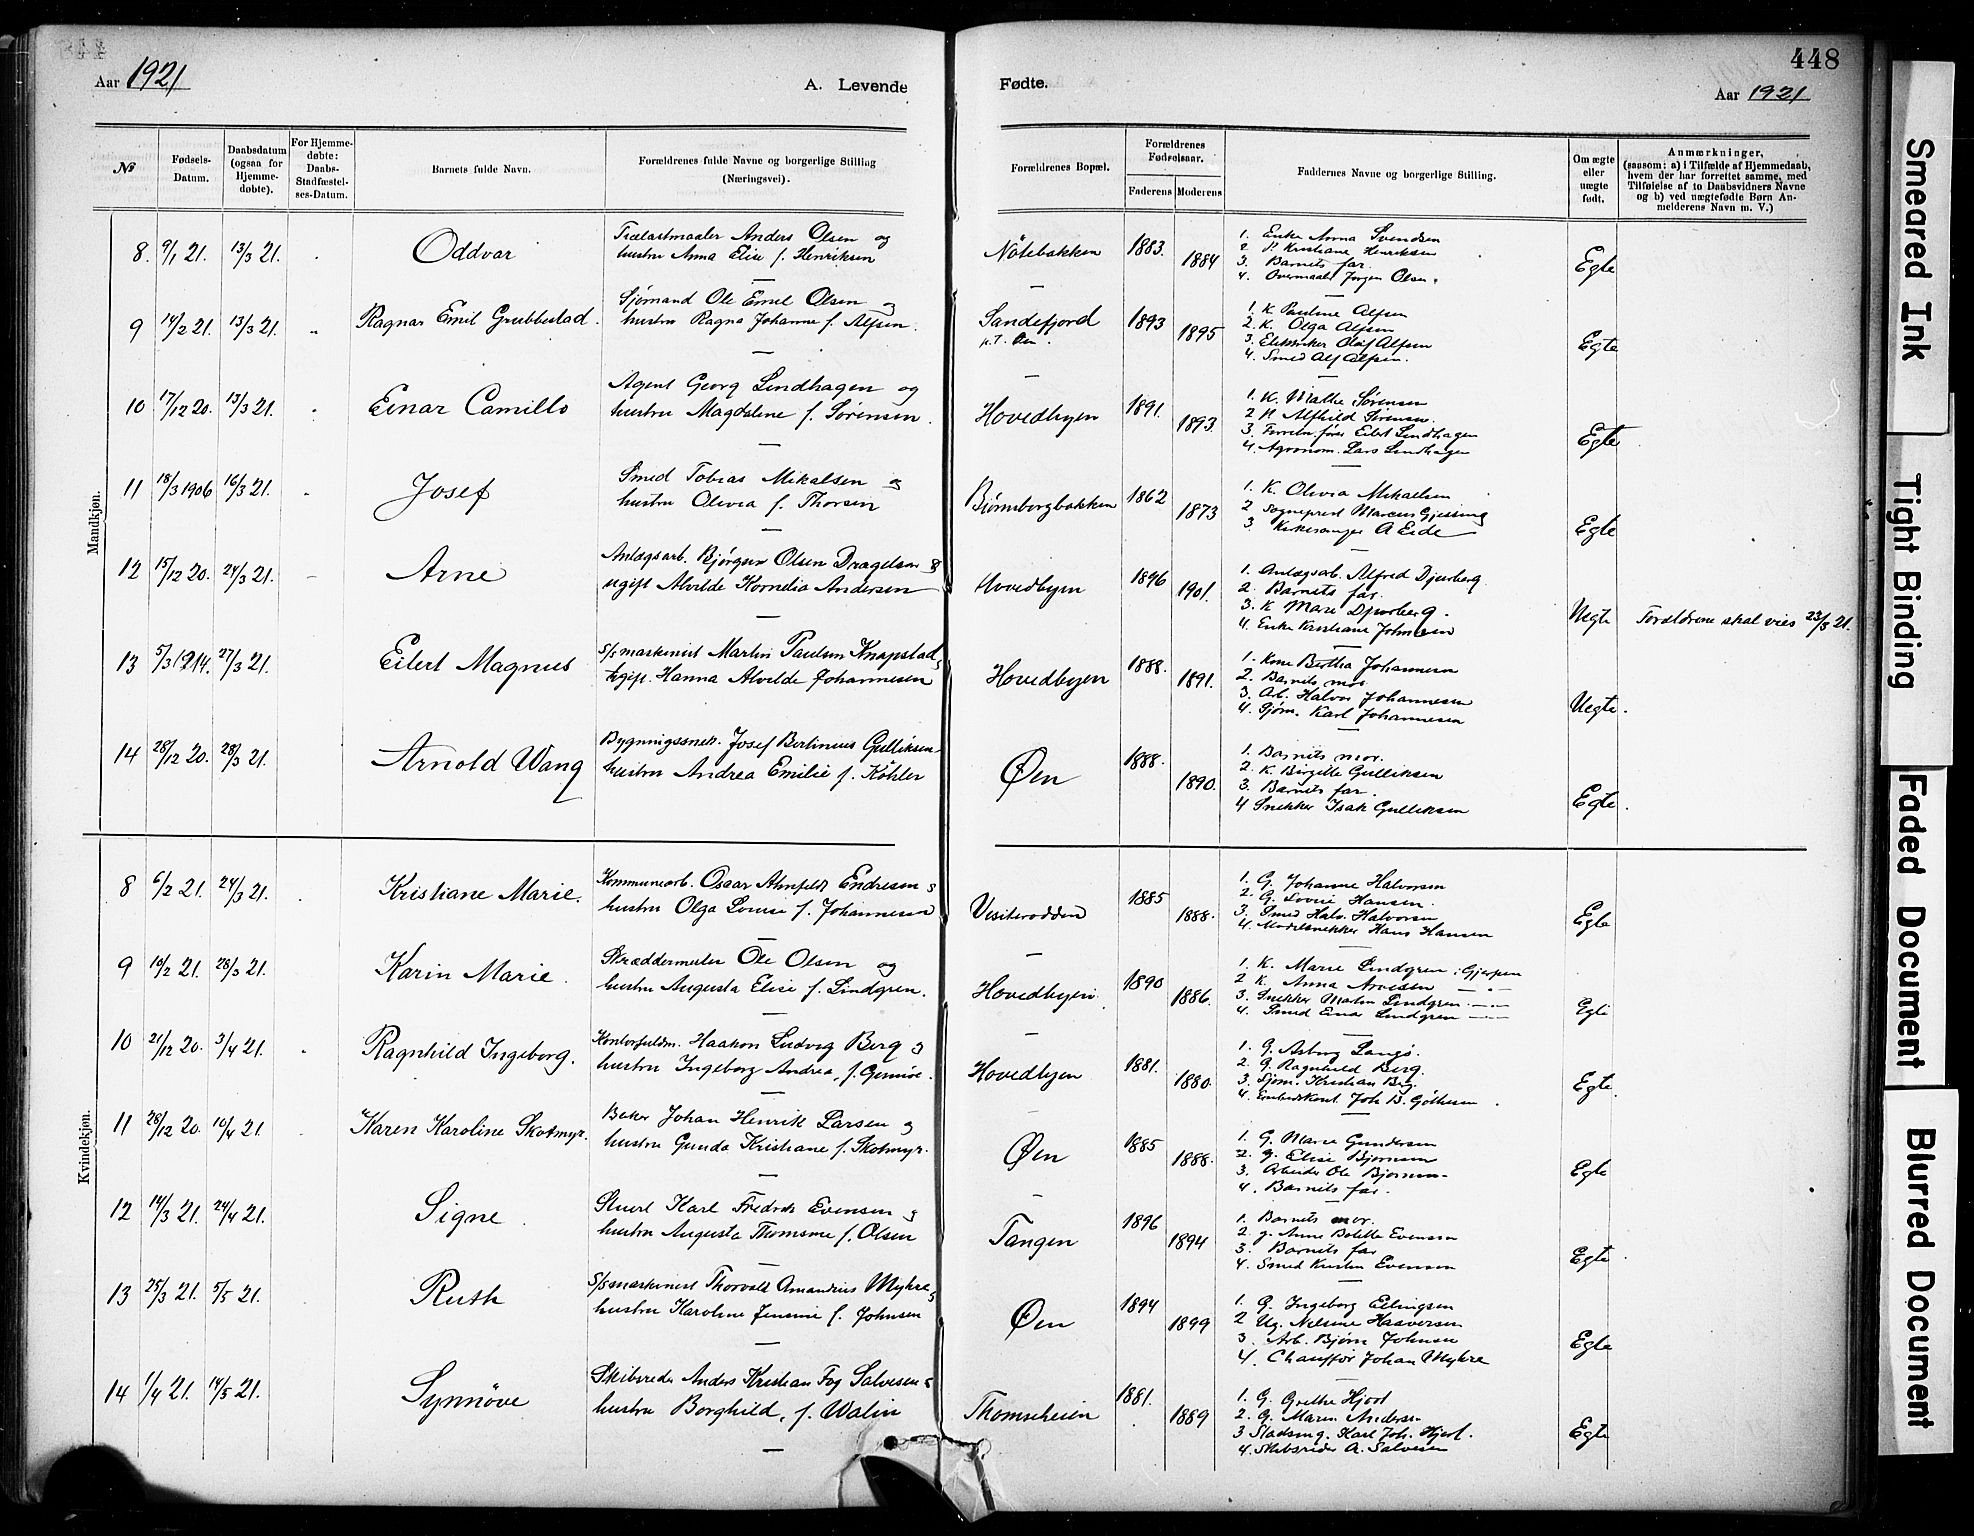 448
Aar 1921
A. Levende Fødte.
Aar 1921
№
Fødsels-Datum.
Daabsdatum (ogsaa for Hjemme-døbte).
For Hjemme-døbte: Daabs-Stadfæstel-ses-Datum.
Barnets fulde Navn.
Forældrenes fulde Navne og borgerlige Stilling (Næringsvei).
Forældrenes Bopæl.
Forældrenes Fødselsaar.
Faderens Moderens
Faddernes Navne og borgerlige Stilling.
Om ægte eller uægte født.
Anmærkninger, (saasom: a) i Tilfælde af Hjemmedaab, hvem der har forrettet samme, med Tilføielse af to Daabsvidners Navne og b) ved uægtefødte Børn An-melderens Navn m. V.)
Mandkjøn.
8. 9/1 21. 13/3 21. Oddvar
Trælastmaaler Anders Olsen og
hustru Anna Elise f. Henriksen
Nötebakken 1883. 1884
1. Enke Anna Svendsen
2. Kristiane Henriksen
3. Barnets far.
4. Overmaaler Jørgen Olsen.
Egte
9 14/2 21. 13/3 21. Ragnar Emil Grubbestad.
Sjømand Ole Emil Olsen og
hustru Ragna Johanne f. Alfsen.
Sandefjord 1893 1895
p.t. Øen.
1. K. Pauline Alfsen
2. K. Olga Alfsen
3. Elektriker Olaf Alfsen
4. Smed Alf Alfsen.
Egte
10 17/12 20. 13/3 21. Einar Camillo
Agent Georg Lindhagen og
hustru Magdalene f. Sørensen.
Hovedbyen 1891. 1893.
1. K. Mathe Sørensen
2 Alfhild Sørensen
3. Forretn.fører Eilert Lindhagen
4. Agronom. Lars Lindhagen
Egte
11 18/3 1906 16/3 21. Josef
Smed Tobias Mikalsen og
hustru Olivia f. Thorsen
Bjørnsborgbakken 1862 1873
1. K. Olivia Mikaelsen
2 Sogneprest Marcus Gjessing
3. Kirkesanger A Eide
Egte
12 15/12 20. 24/3 21. Arne
Anlægsarb. Bjørgun Olsen Dragelsen &
ugift Alvilde Kornelia Andersen
Hovedbyen 1896 1901.
1. Anlægsarb. Alfred Djurberg
2. Barnets far.
3. K Mari Djurberg.
4. Enke Kristiane Johnsen
Uegte Forældrene skal vies 23/3 21.
13 5/3 1914. 27/3 21. Eilert Magnus
S/s maskinist Martin Paulsen Knapstad
Ugift. Hanna Alvilde Johannesen
Hovedbyen 1888. 1891.
1. Kone Bertha Johannesen
2. Barnets mor
3. Arb. Halvor Johannesen
4. Sjøm. Karl Johannesen
Uegte.
14 28/12 20. 28/3 21. Arnold Wang
Bygningssnek. Josef Bertinius Gulliksen
hustru Andrea Emilie f. Köhler
Øen 1888. 1890.
1. Barnets mor.
2. K. Birgitte Gulliksen
3. Barnets far.
4 Snekker Isak Gulliksen
Egte.
Kvindekjøn.
8 6/2 21. 24/3 21. Kristiane Marie.
Kommunearb. Oscar Ahnfeldt Endresen
hustru Olga Louise f. Johannesen
Visiterodden 1885 1888.
1. G. Johanne Halvorsen
2. G. Lovise Hansen.
3. Smed Halv. Halvorsen
4. Modelsnekker Hans Hansen
Egte
9 10/2 21. 28/3 21. Karin Marie.
Skræddermester Ole Olsen og
hustru Augusta Elise f. Lindgren.
Hovedbyen 1890 1886.
1. K. Marie Lindgren, Gjerpen
2 K. Anna Arvesen
3. Snekker Martin Lindgren
4. Smed Einar Lindgren
Egte
10 21/12 20. 3/4 21. Ragnhild Ingeborg.
Kontorfuldm. Haakon Ludvig Berg
hustru Ingeborg Andrea, f.
Hovedbyen 1881. 1880.
1. G. Asborg
2. G. Ragnhild Berg.
3. Sjøm. Kristian Berg.
4. Joh. B.
Egte.
11 28/12 20. 10/4 21. Karen Karoline Skotmyr.
Baker Johan Henrik Larsen
hustru Gunda Kristiane f. Skotmyr.
Øen 1885 1888.
1. G. Marie Gundersen
2. G. Elise Bjørnsen
3. Arbeider Ole Bjørnsen
4. Barnets far.
Egte
12 14/3 21. 24/4 21. Signe.
Stuert Karl Fredrik Evensen
hustru Augusta Thomsine f. Olsen
Tangen 1896 1894
1. Barnets mor.
2. g. Anne Bolette Evensen
3. Barnets far
4. Smed Kristen Evensen
Egte
13 25/3 21. 5/5 21. Ruth
S/s maskinist Thorvald Amandius Myhre
hustru Karoline Jensine f. Johnsen
Øen 1894 1899
1. G. Ingeborg Ellingsen
2 Ug. Nelsine Haavorsen
3. Arb. Bjørn Johnsen
4. Chauffør Johan Myhre
Egte
14 1/4 21. 14/5 21. Synnöve
Skibsreder Anders Kristian Fog Salvesen
hustru Borghild, f. Walin
Thomseheien 1881. 1889
1. G. Grethe Hjort
2. G. Maren
3 Stadsing. Karl Joh. Hjort.
4. Skibsreder A. Salvesen
Egte
Smeared Ink
Tight Binding
Faded Document
Blurred Document